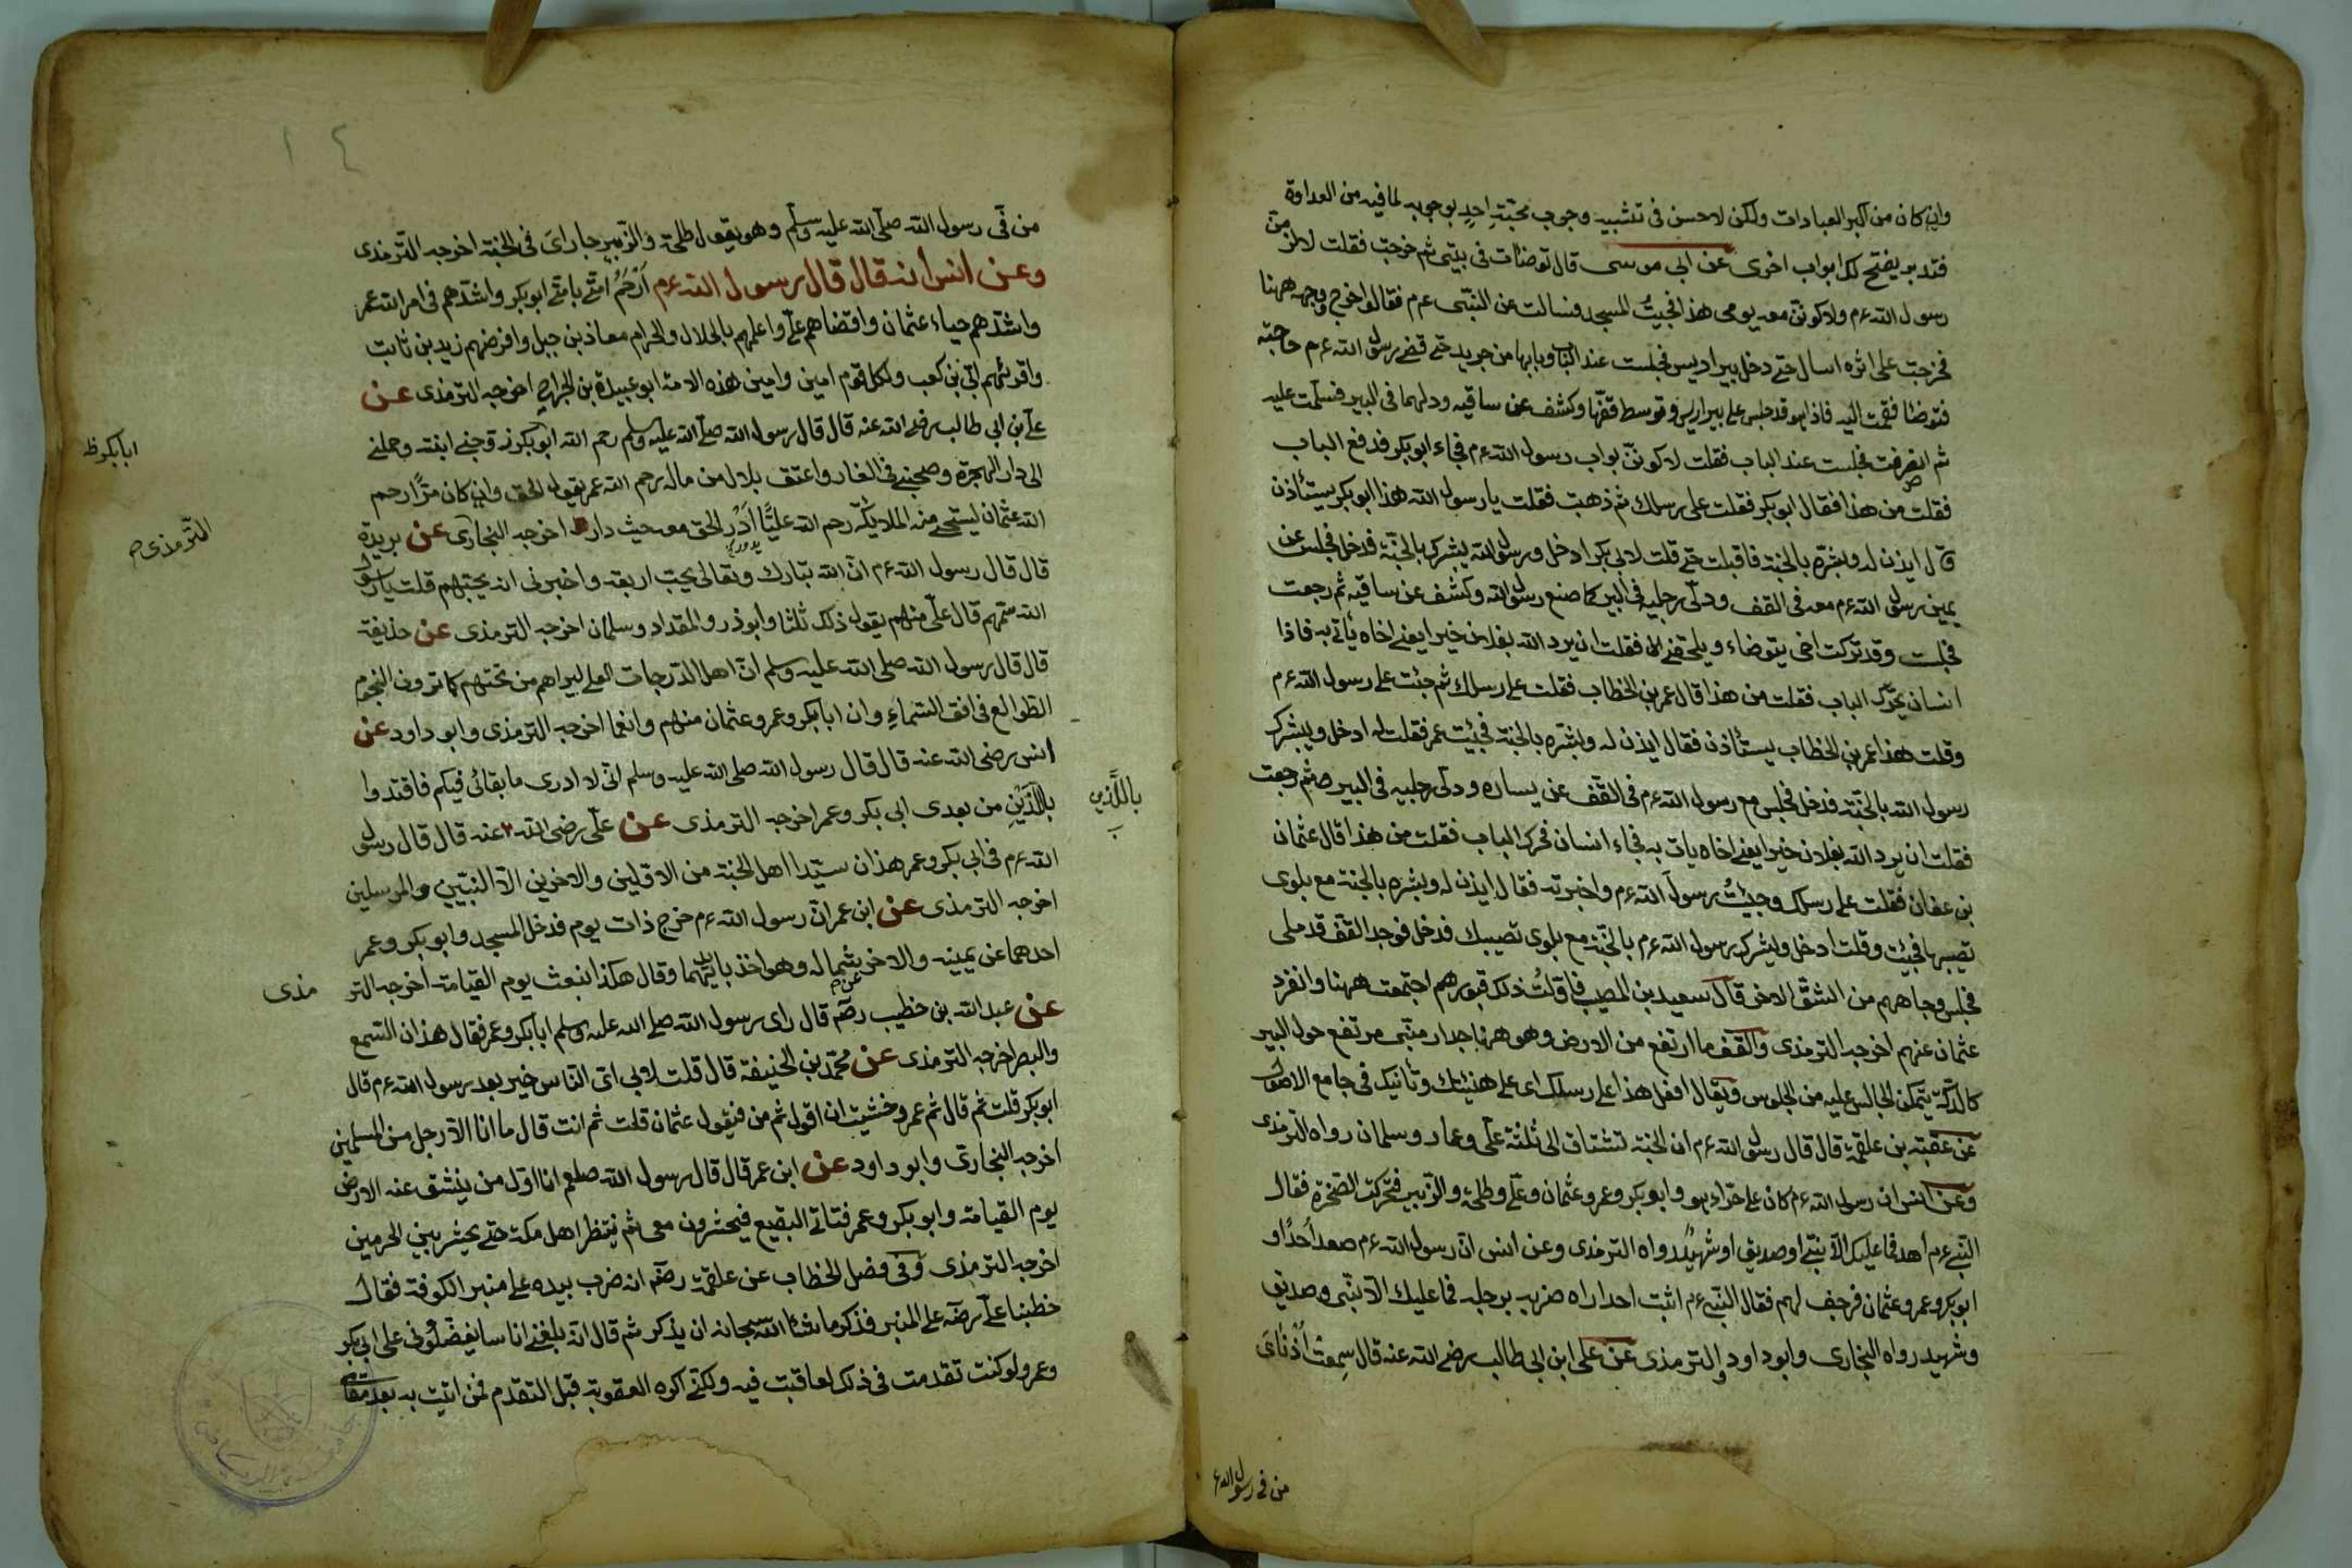 وان كان من اكبر العبادات ولكن لاحسن في تشبيه وجوب محبّة احدٍ بوجوبه لما فيه من العداوة
فتدبر يفتح لك ابواب اخرى عن ابي موسى قال توضات في بيتي ثم خرجت فقلت لالزمن
رسول الله ءم ولاكونن معه يومى هذا فجيتُ المسجد فسالت عن النبّى ءم فقالوا خرج وجهه ههنا
فخرجت على اثره اسال حتى دخل بير اريس فجلست عند الباب وبابها من جريد حتى قضى رسول الله ءم حاجته
فتوضا فقمت اليه فاذا هو قد جلس على بير اريس وتوسط قفّها وكشف عن ساقيه ودلهما في البير فسلمت عليه
ثم انصرفت فجلست عند الباب فقلت لاكوننّ بواب رسول الله ءم فجاء ابو بكر فدفع الباب
فقلت من هذا فقال ابو بكر فقلت على رسلك ثم ذهبت فقلت يا رسول الله هذا ابو بكر يستأذن
قال ايذن له وبشره بالجنة فاقبلت حتى قلت لابي بكر ادخل ورسول الله يبشرك بالجنّة فدخل فجلس عن
يمين رسول الله ءم معه في القف ودلّى رجليه في البير كما صنع رسول الله وكشف عن ساقيه ثم رجعت
فجلست وقد تركت اخى يتوضاء ويلحقنى فقلت ان يرد الله بفلان خيرا يعنى اخاه يأتى به فاذا
انسان يحرّك الباب فقلت من هذا قال عمر بن الخطاب فقلت على رسلك ثم جئت على رسول الله ءم
وقلت هذا عمر بن الخطاب يستأذن فقال ايذن له وبشره بالجنة فجيئت عمر فقلت له ادخل ويبشرك
رسول الله بالجنّة فدخل فجلس مع رسول الله ءم في القفّ عن يساره ودلى رجليه في البير ثم رجعت
فقلت ان يرد الله بفلان خيرا يعنى اخاه يات به فجاء انسان فحرك الباب فقلت من هذا قال عثمان
بن عفان فقلت على رسلك وجيئتُ رسولَ الله ءم واخبرته فقال ايذن له وبشره بالجنة مع بلوى
تصيبها فجيئت وقلت ادخل ويبشرك رسول الله ءم بالجنّة مع بلوى تصيبك فدخل فوجد القفّ قد ملى
فجلس وجاههم من الشقّ الاخر قال سعيد بن المصيب فاوّلتُ ذلك قبورهم اجتمعت ههنا وانفرد
عثمان عنهم اخرجه الترمذى والقف ما ارتفع من الارض وهو ههنا جدار مبّنى مرتفع حول البير
كالدكّة يتمكن الجالس عليه من الجلوس ويقال افعل هذا على رسلك اى على هنيئتك وتأنيك في جامع الاصول
عن عقبة بن علقمة قال قال رسول الله ءم ان الجنة تشتاق الى ثلثة علّى وعمار وسلمان رواه الترمذى
وعن انس ان رسول الله ءم كان على حرّاء هو وابو بكر وعمر وعثمان وعلّى وطلحة والزّبير فتحركت الصّخرة فقال
النّبى ءم اهد فما عليك الّا نبّى او صديق او شهيدٌ رواه الترمذى وعن انس انّ رسول الله ءم صعد أحدًا و
ابو بكر وعمر وعثمان فرجف لهم فقال النبى ءم اثبت احد اراه ضربه برجله فما عليك الّا نبّى وصديق
وشهيد رواه البخارى وابو داود والترمذى عن على ابن ابى طالب رضى الله عنه قال سمعت أُذُناىَ
من في رسول الله ء
من فّى رسول الله صلّى الله عليه وسلّم وهو يقول طلحة والزّبير جاراىَ في الجنة اخرجه الترمذى
وعن انس انه قال قال رسول الله ءم أَرْحَمُ امتى بامتى ابو بكر واشدّهم في امر الله عمر
واشدّهم حياء عثمان واقضاهم علّى واعلمهم بالحلال والحرام معاذ بن جبل وافرضهم زيد بن ثابت
واقرئهم ابّى بن كعب ولكل قوم امين وامين هذه الامة ابو عبيدة بن الجراح اخرجه الترمذى عن
علّى بن ابى طالب رضى الله عنه قال قال رسول الله صلّى الله عليه وسلم رحم الله ابو بكر زوجنى ابنته وحملنى
ابابكر ظ
الى دار الهجرة وصحبنى في الغار واعتق بلال من ماله رحم الله عمر يقول الحق وان كان مرًّا رحم
الله عثمان يستحى منه الملايكة رحم الله عليًّا أَدْرِ الحق معه حيث دار اخرجه البخارى عن بريدة
الترمذى ص
قال قال رسول الله ءم انّ الله تبارك وتعالى يحبّ اربعة واخبرنى انه يحبّهم قلت يا رسول
الله سمّهم قال علّى منهم يقول ذلك ثلثا وابو ذر والمقداد وسلمان اخرجه الترمذى عن حذيفة
قال قال رسول الله صلى الله عليه وسلم انّ اهل الدّرجات العلى ليراهم من تحتهم كما ترون النجوم
الطّوالع في افق السّماء وان ابابكر وعمر وعثمان منهم وانعما اخرجه الترمذى وابو داود عن
انس رضى الله عنه قال قال رسول الله صلى الله عليه وسلم انّى لا ادرى ما بقائى فيكم فاقتدوا
باللّذين من بعدى ابى بكر وعمر اخرجه الترمذى عن علّى رضى الله عنه قال قال رسول
باللَّذين
الله ءم في ابى بكر وعمر هذان سيّدا اهل الجنة من الاوّلين والاخرين الّا النبّيين والمرسلين
اخرجه الترمذى عن ابن عمر انّ رسول الله ءم خرج ذات يوم فدخل المسجد وابو بكر وعمر
احدهما عن يمينه والاخر بشماله وهو اخذ بايديهما وقال هكذا نبعث يوم القيامة اخرجه التر مذى
عن عبد الله بن حطيب رضه قال راى رسول الله صلى الله عليه وسلم ابابكر وعمر فقال هذان السّمع
والبصر اخرجه الترمذى عن محمّد بن الحنيفة قال قلت لابى اىّ النّاس خير بعد رسول الله ءم قال
ابو بكر قلت ثم قال ثم عمر وخشيت ان اقول ثم من فيقول عثمان قلت ثم انت قال ما انا الّا رجل من المسلمين
اخرجه البخارى وابو داود عن ابن عمر قال قال رسول الله صلعم انا اول من ينشق عنه الارض
يوم القيامة وابو بكر وعمر فتاتى البقيع فيحشرون معى ثم ننتظر اهل مكة حتى يحشر بينى الحرمين
اخرجه الترمذى وفى فضل الخطاب عن علقمة رضه انه ضرب بيده على منبر الكوفة فقال
خطبنا علّى رضه على المنبر فذكر ماشاء الله سبحانه ان يذكر ثم قال انّه بلغنى اناسا يفضّلونى على ابى بكر
وعمر ولو كنت تقدمت في ذلك لعاقبت فيه ولكنّى اكره العقوبة قبل التقدم فمن اتيت به بعد مقامى